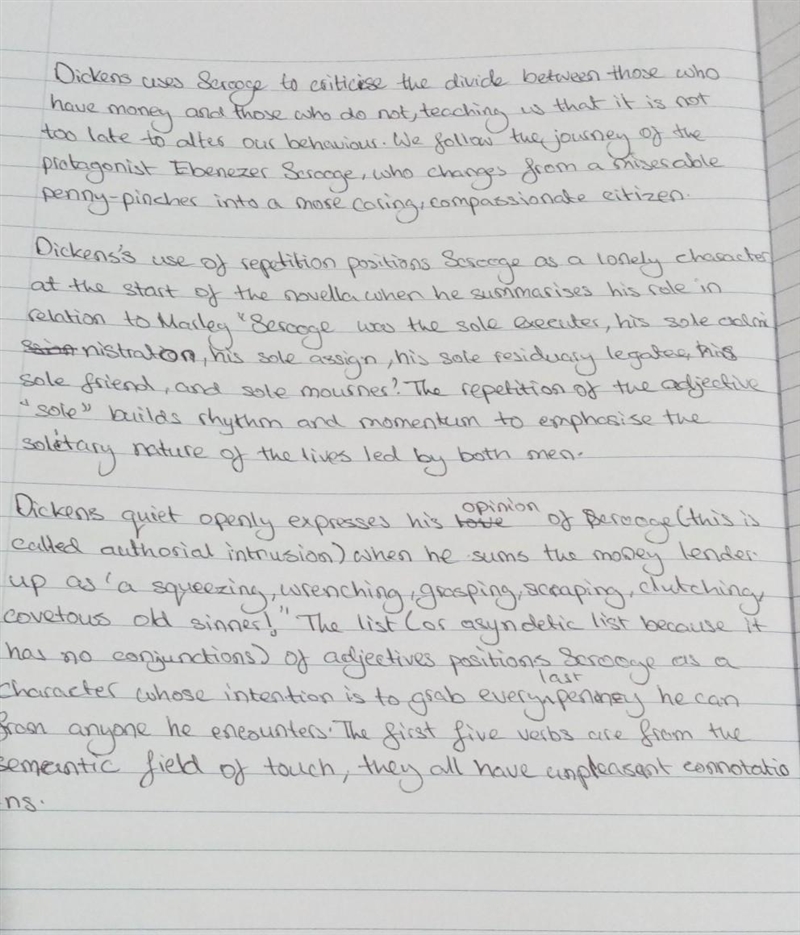 Dickens uses Scrooge to criticise the divide between those who
have money and those who do not, teaching us that it is not
too late to alter our behaviour. We follow the journey of the
protagonist Ebenezer Scrooge, who changes from a miserable
penny-pincher into a more caring, compassionate citizen.
Dickens's use of repetition positions Scrooge as a lonely character
at the start of the novella when he summarises his role in
relation to Marley "Scrooge was the sole executer, his sole admi
nistration, his sole assign, his sole residuary legatee, his
sole friend, and sole mourner". The repetition of the adjective
"sole" builds rhythm and momentum to emphasise the
solitary nature of the lives led by both men.
Dickens quiet openly expresses his opinion of Scrooge (this is
called authorial intrusion) when he sums the money lender
up as 'a squeezing, wrenching, grasping, scraping, clutching,
covetous old sinner!" The list (or asyndetic list because it
has no conjunctions) of adjectives positions Scrooge as a
character whose intention is to grab every last penney he can
from anyone he encounters. The first five verbs are from the
semantic field of touch, they all have unpleasant connotatio
ns.